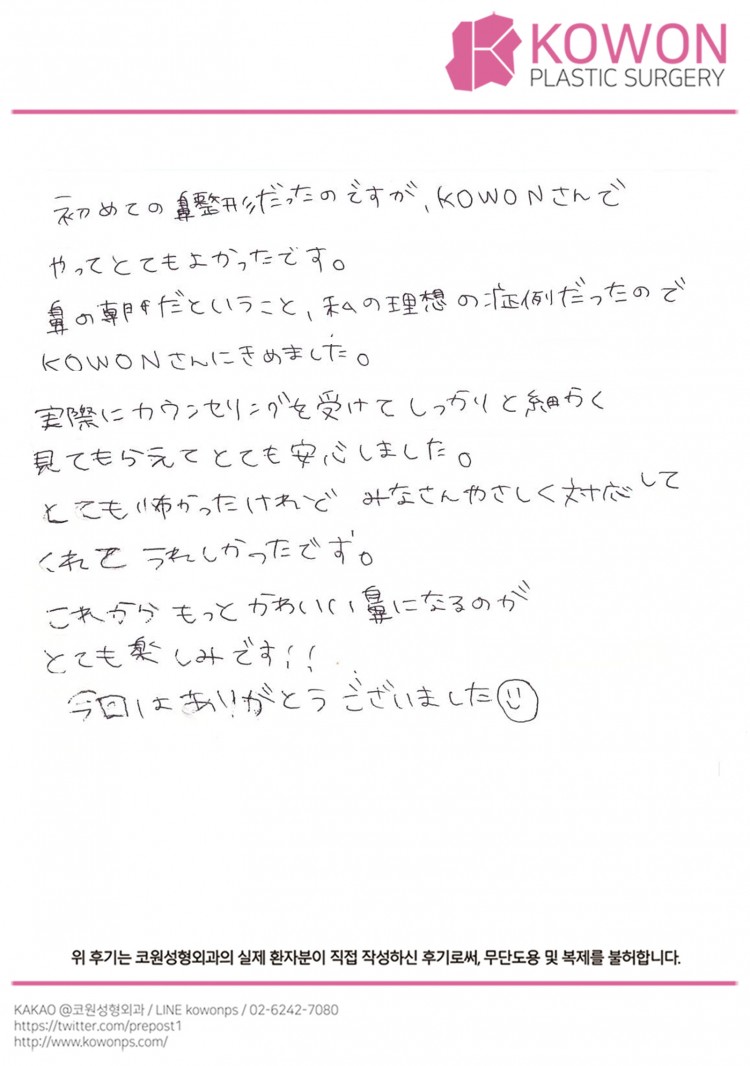 KOWON
PLASTIC SURGERY
初めての鼻整形だったのですが、KOWONさんで
やってとてもよかったです。
鼻の専門だということ、私の理想の症例だったので
KOWONさんにきめました。
実際にカウンセリングを受けてしっかりと細かく
見てもらえてとても安心しました。
とても怖かったけれど みなさんやさしく対応して
くれて うれしかったです。
これから もっと かわいい鼻になるのが
とても楽しみです!!
今回は ありがとう ございました
위 후기는 코원성형외과의 실제 환자분이 직접 작성하신 후기로써, 무단도용 및 복제를 불허합니다.
KAKAO @코원성형외과 / LINE kowonps / 02-6242-7080
https://twitter.com/prepost1
http://www.kowonps.com/